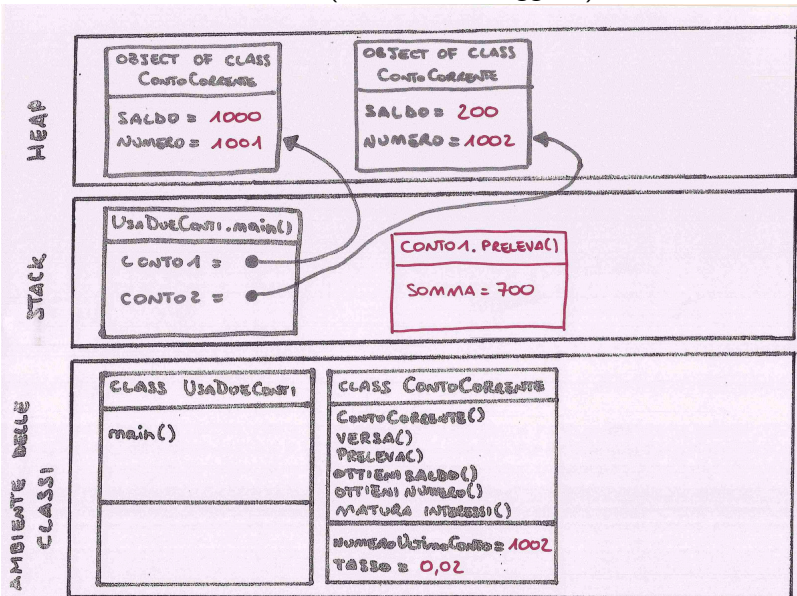 HEAP
OBJECT OF CLASS
ContoCorrente
SALDO = 1000
NUMERO = 1001
OBJECT OF CLASS
ContoCorrente
SALDO = 200
NUMERO = 1002
STACK
UsaDueConti.main()
CONTO1 =
CONTO2 =
CONTO1.PRELEVA()
SOMMA = 700
AMBIENTE DELLE
CLASSI
CLASS UsaDueConti
main()
CLASS ContoCorrente
ContoCorrente()
VERSA()
PRELEVA()
OTTIENI SALDO()
OTTIENI NUMERO()
MATURA INTERESSI()
NUMEROUltimoConto = 1002
TASSO = 0,02